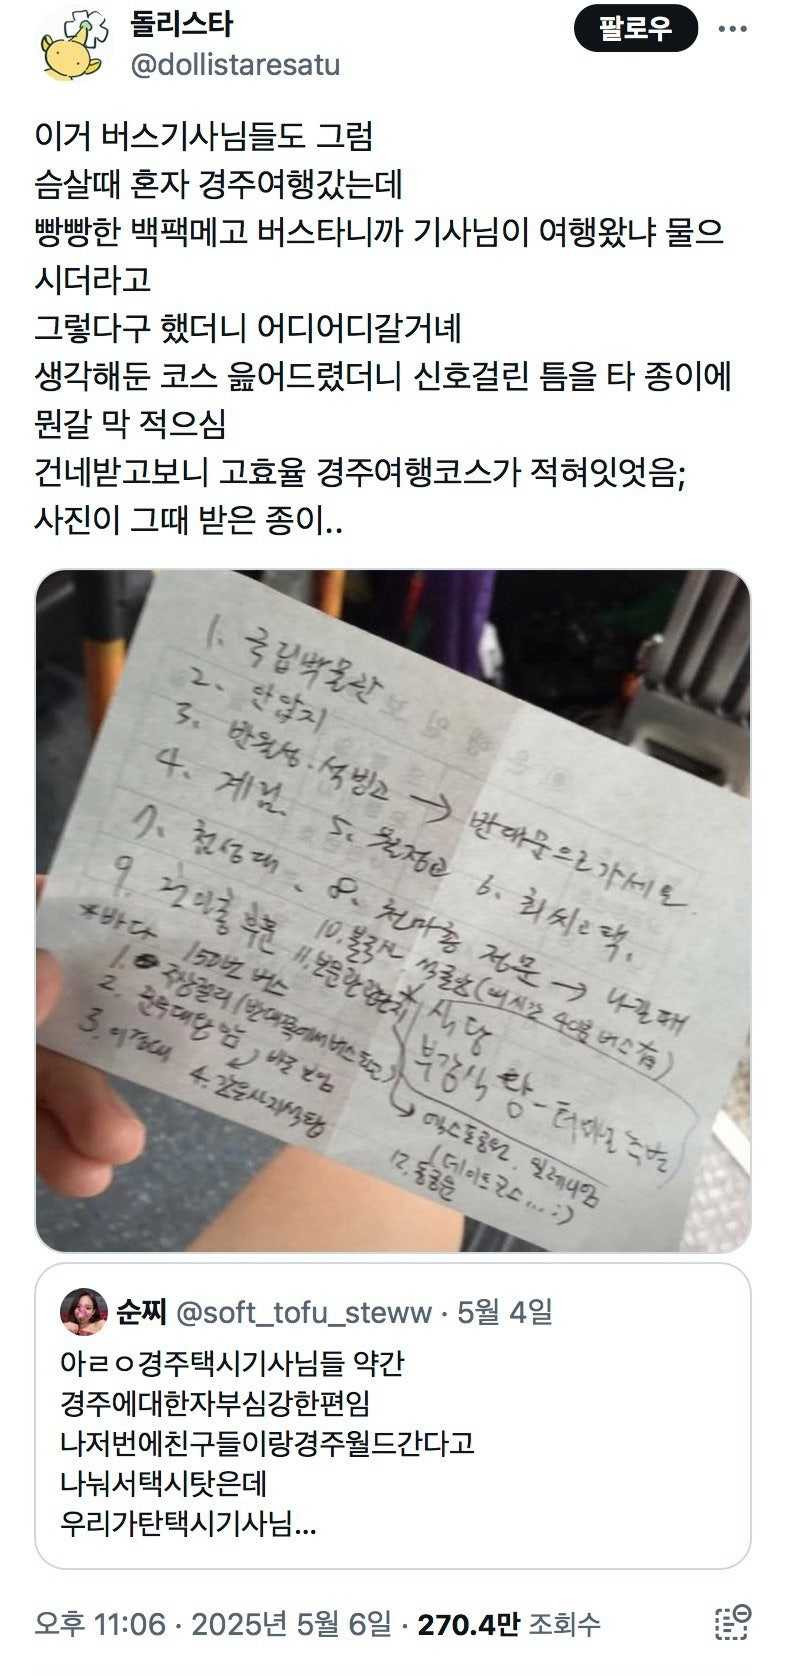 돌리스타
팔로우
@dollistaresatu
이거 버스기사님들도 그럼
슴살때 혼자 경주여행갔는데
빵빵한 백팩메고 버스타니까 기사님이 여행왔냐 물으
시더라고
그렇다구 했더니 어디어디갈거녜
생각해둔 코스 읊어드렸더니 신호걸린 틈을 타 종이에
뭔갈 막 적으심
건네받고보니 고효율 경주여행코스가 적혀잇엇음;
사진이 그때 받은 종이..
1. 국립박물관
2. 안압지
3. 반월성. 석빙고 → 반대문으로 가세요.
4. 계림. 5. 월정교 6. 최씨고택.
7. 첨성대. 8. 천마총 정문 → 나갈때
9. 천마총 후문 10. 불국사 석굴암 (매시간 40분 버스 有)
*바다 150번 버스 11. 보문관광단지
* 식당
1. 주상절리 (반대쪽에서 버스타고)
2. 문무대왕릉 바로 보임
3. 이견대 4. 감은사지석탑
엑스포공원. 밀레니엄
(데이트코스...:)
12. 동궁원
순찌 @soft_tofu_steww · 5월 4일
아ㄹㅇ경주택시기사님들 약간
경주에대한자부심강한편임
나저번에친구들이랑경주월드간다고
나눠서택시탓은데
우리가탄택시기사님...
오후 11:06 · 2025년 5월 6일 · 270.4만 조회수